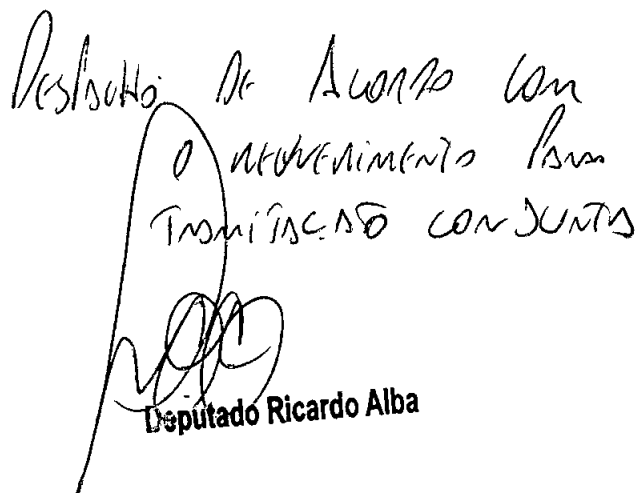 Despacho: De Acordo com
o requerimento para
tramitação conjunta
Deputado Ricardo Alba